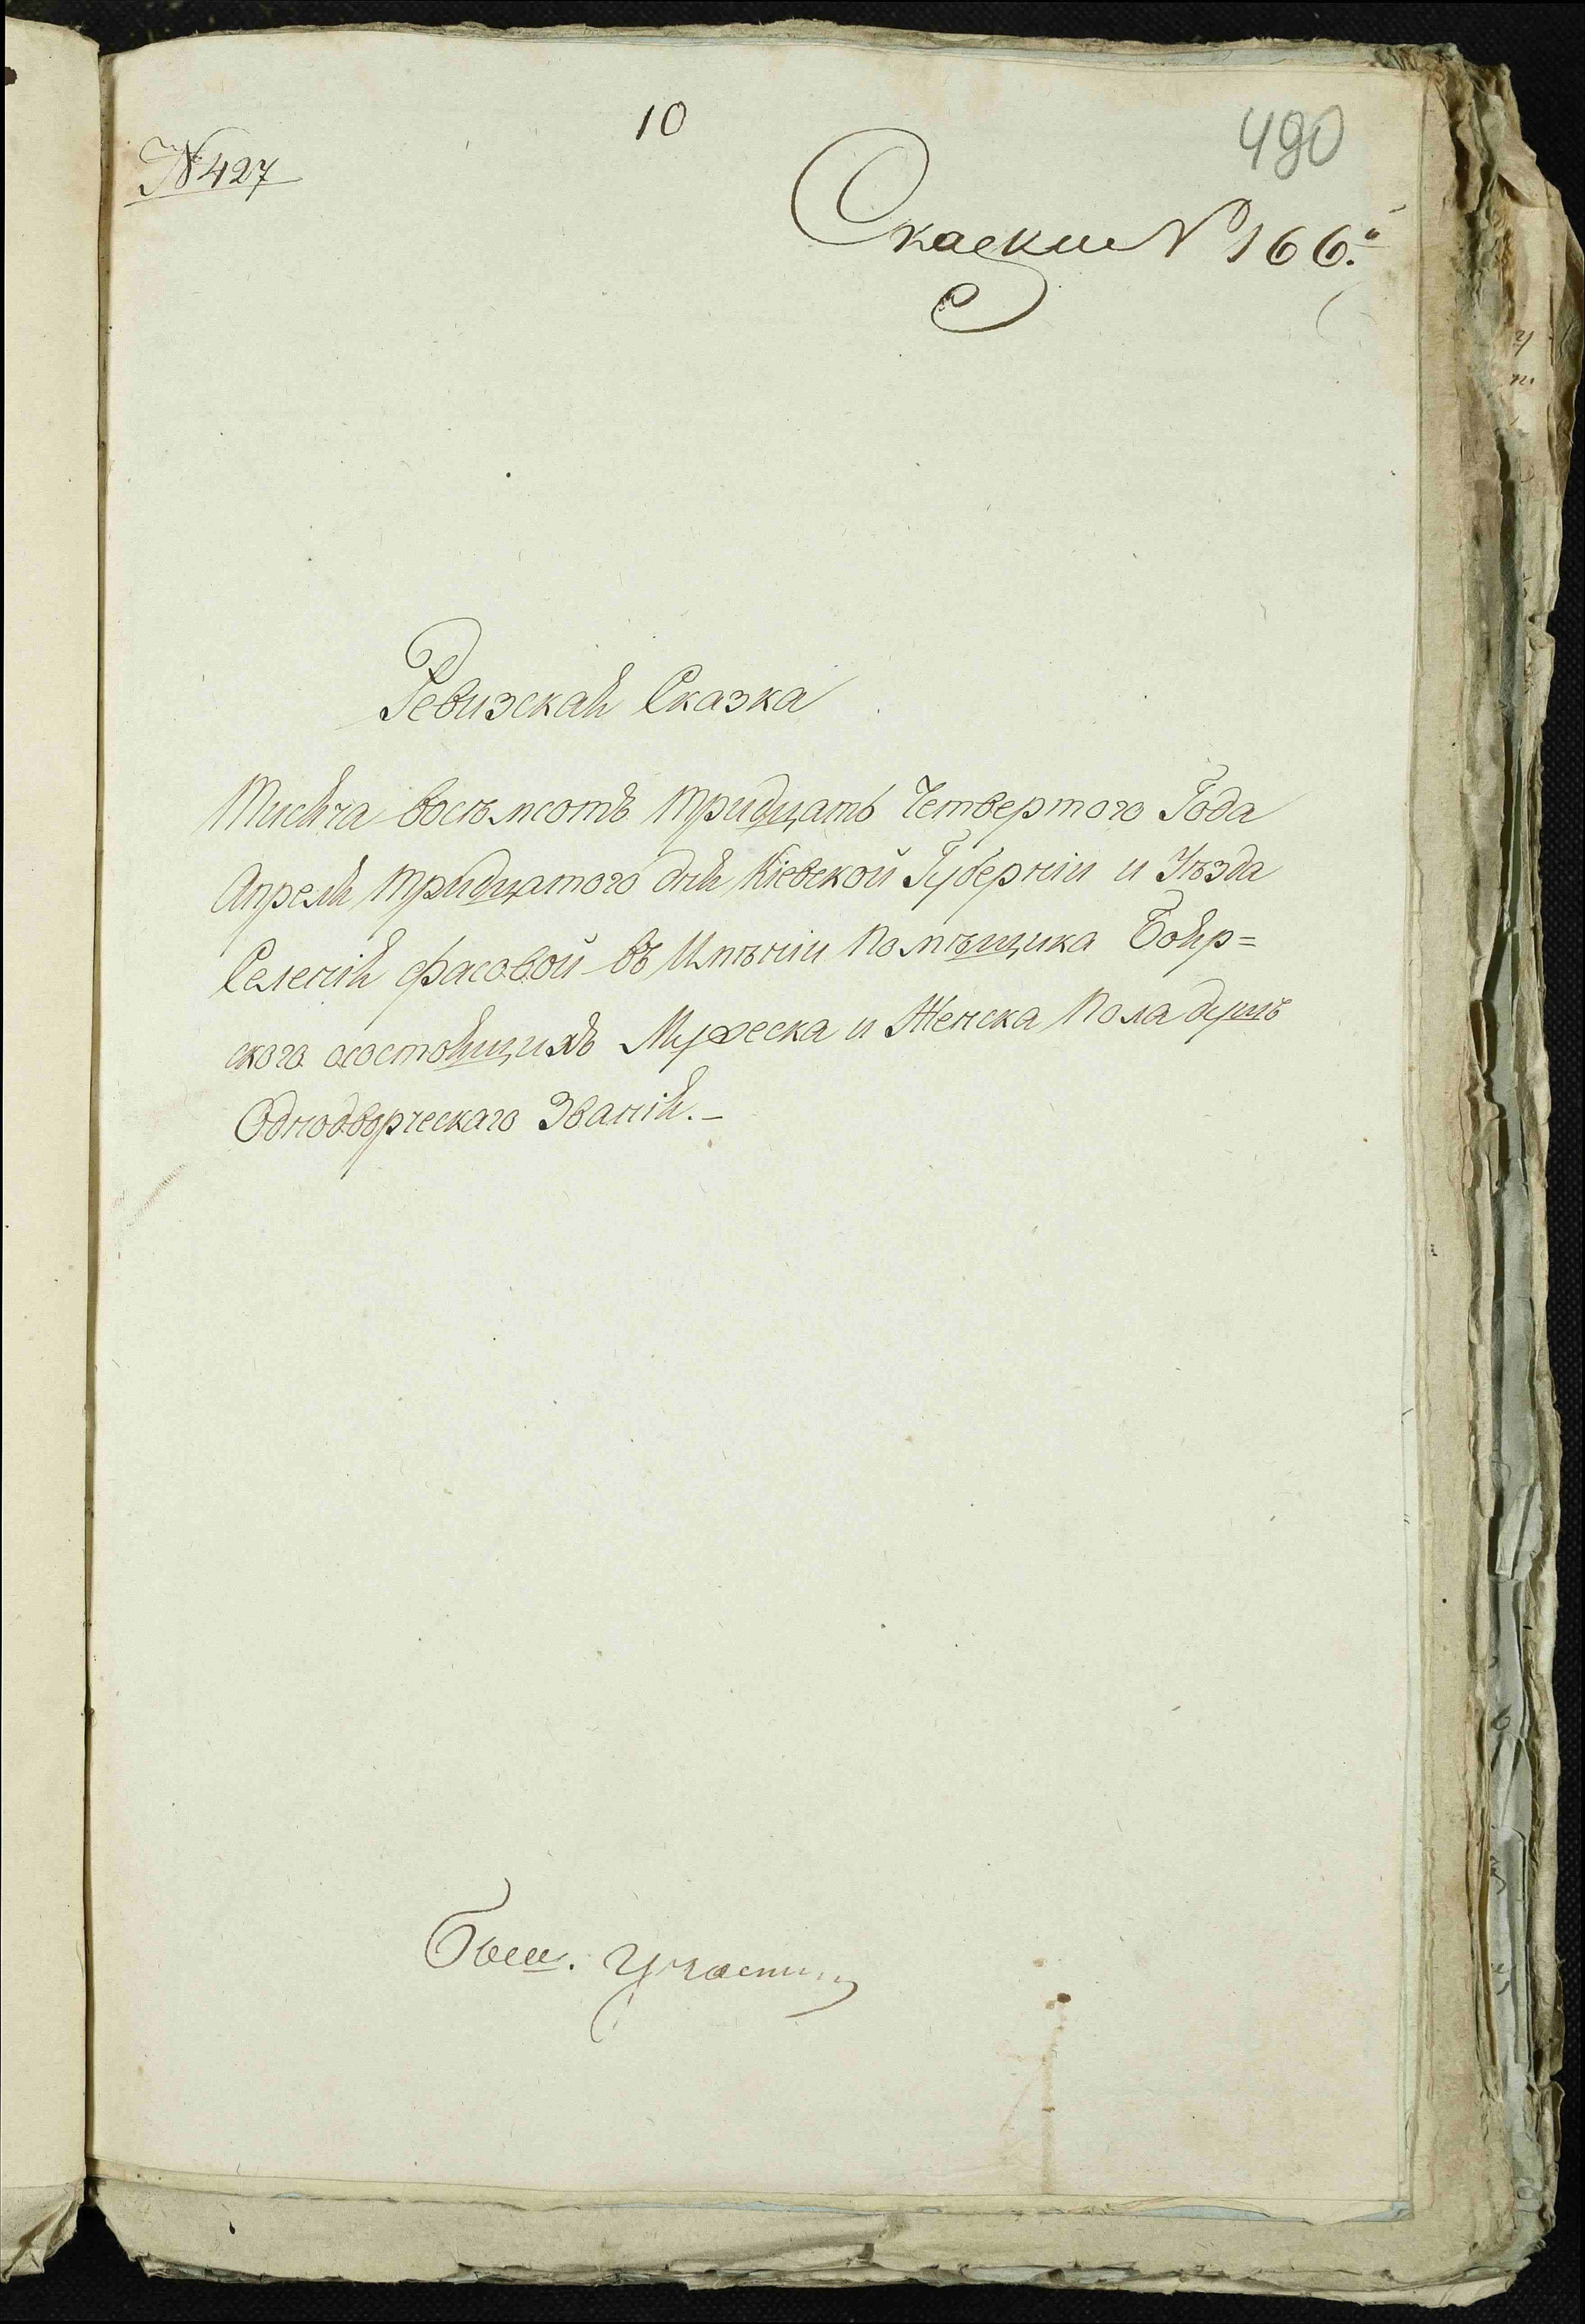 10
490
№ 427
Скаски № 166.й
Ревизская Сказка
Тисяча восѣмсотъ тридцать Четвертого Года
Апреля тридцатого дня Кіевской Губерніи и Уѣзда
Селенія Фасовой въ Имѣніи Помѣщика Бояр=
ского осостоящихъ Мужеска и Женска Пола душъ
Однодворческаго Званія.–